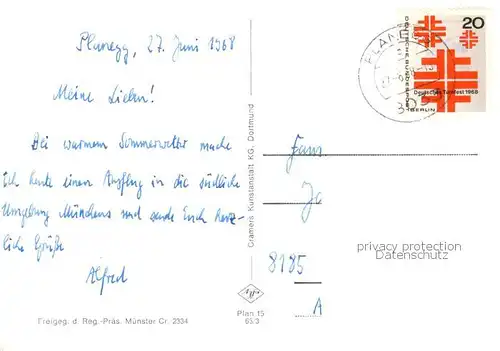 Planegg, 27. Juni 1968
Meine Lieben!
Bei warmem Sommerwetter mache
ich heute einen Ausflug in die südliche
Umgebung Münchens und sende Euch herz-
liche Grüße
Alfred
Freigeg. d. Reg.-Präs. Münster Cr. 2334
Cramers Kunstanstalt KG, Dortmund
Plan 15
65/3
20
DEUTSCHE BUNDESPOST
Deutsches Turnfest 1968
BERLIN
PLANEGG
Fam
8185
A
privacy protection
Datenschutz